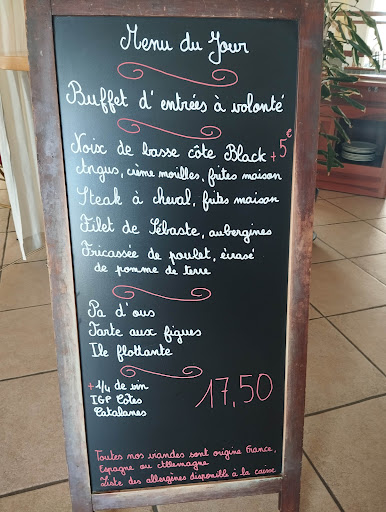 Menu du Jour
Buffet d'entrées à volonté
Noix de basse côte Black + 5€
Angus, crème morilles, frites maison
Steak à cheval, frites maison
Filet de Sébaste, aubergines
Fricassée de poulet, écrasé
de pomme de terre
Pa d'ous
Tarte aux figues
Ile flottante
+ 1/4 de vin
IGP Côtes
Catalanes
17,50
Toutes nos viandes sont origine France,
Espagne ou Allemagne
Liste des allergènes disponible à la caisse